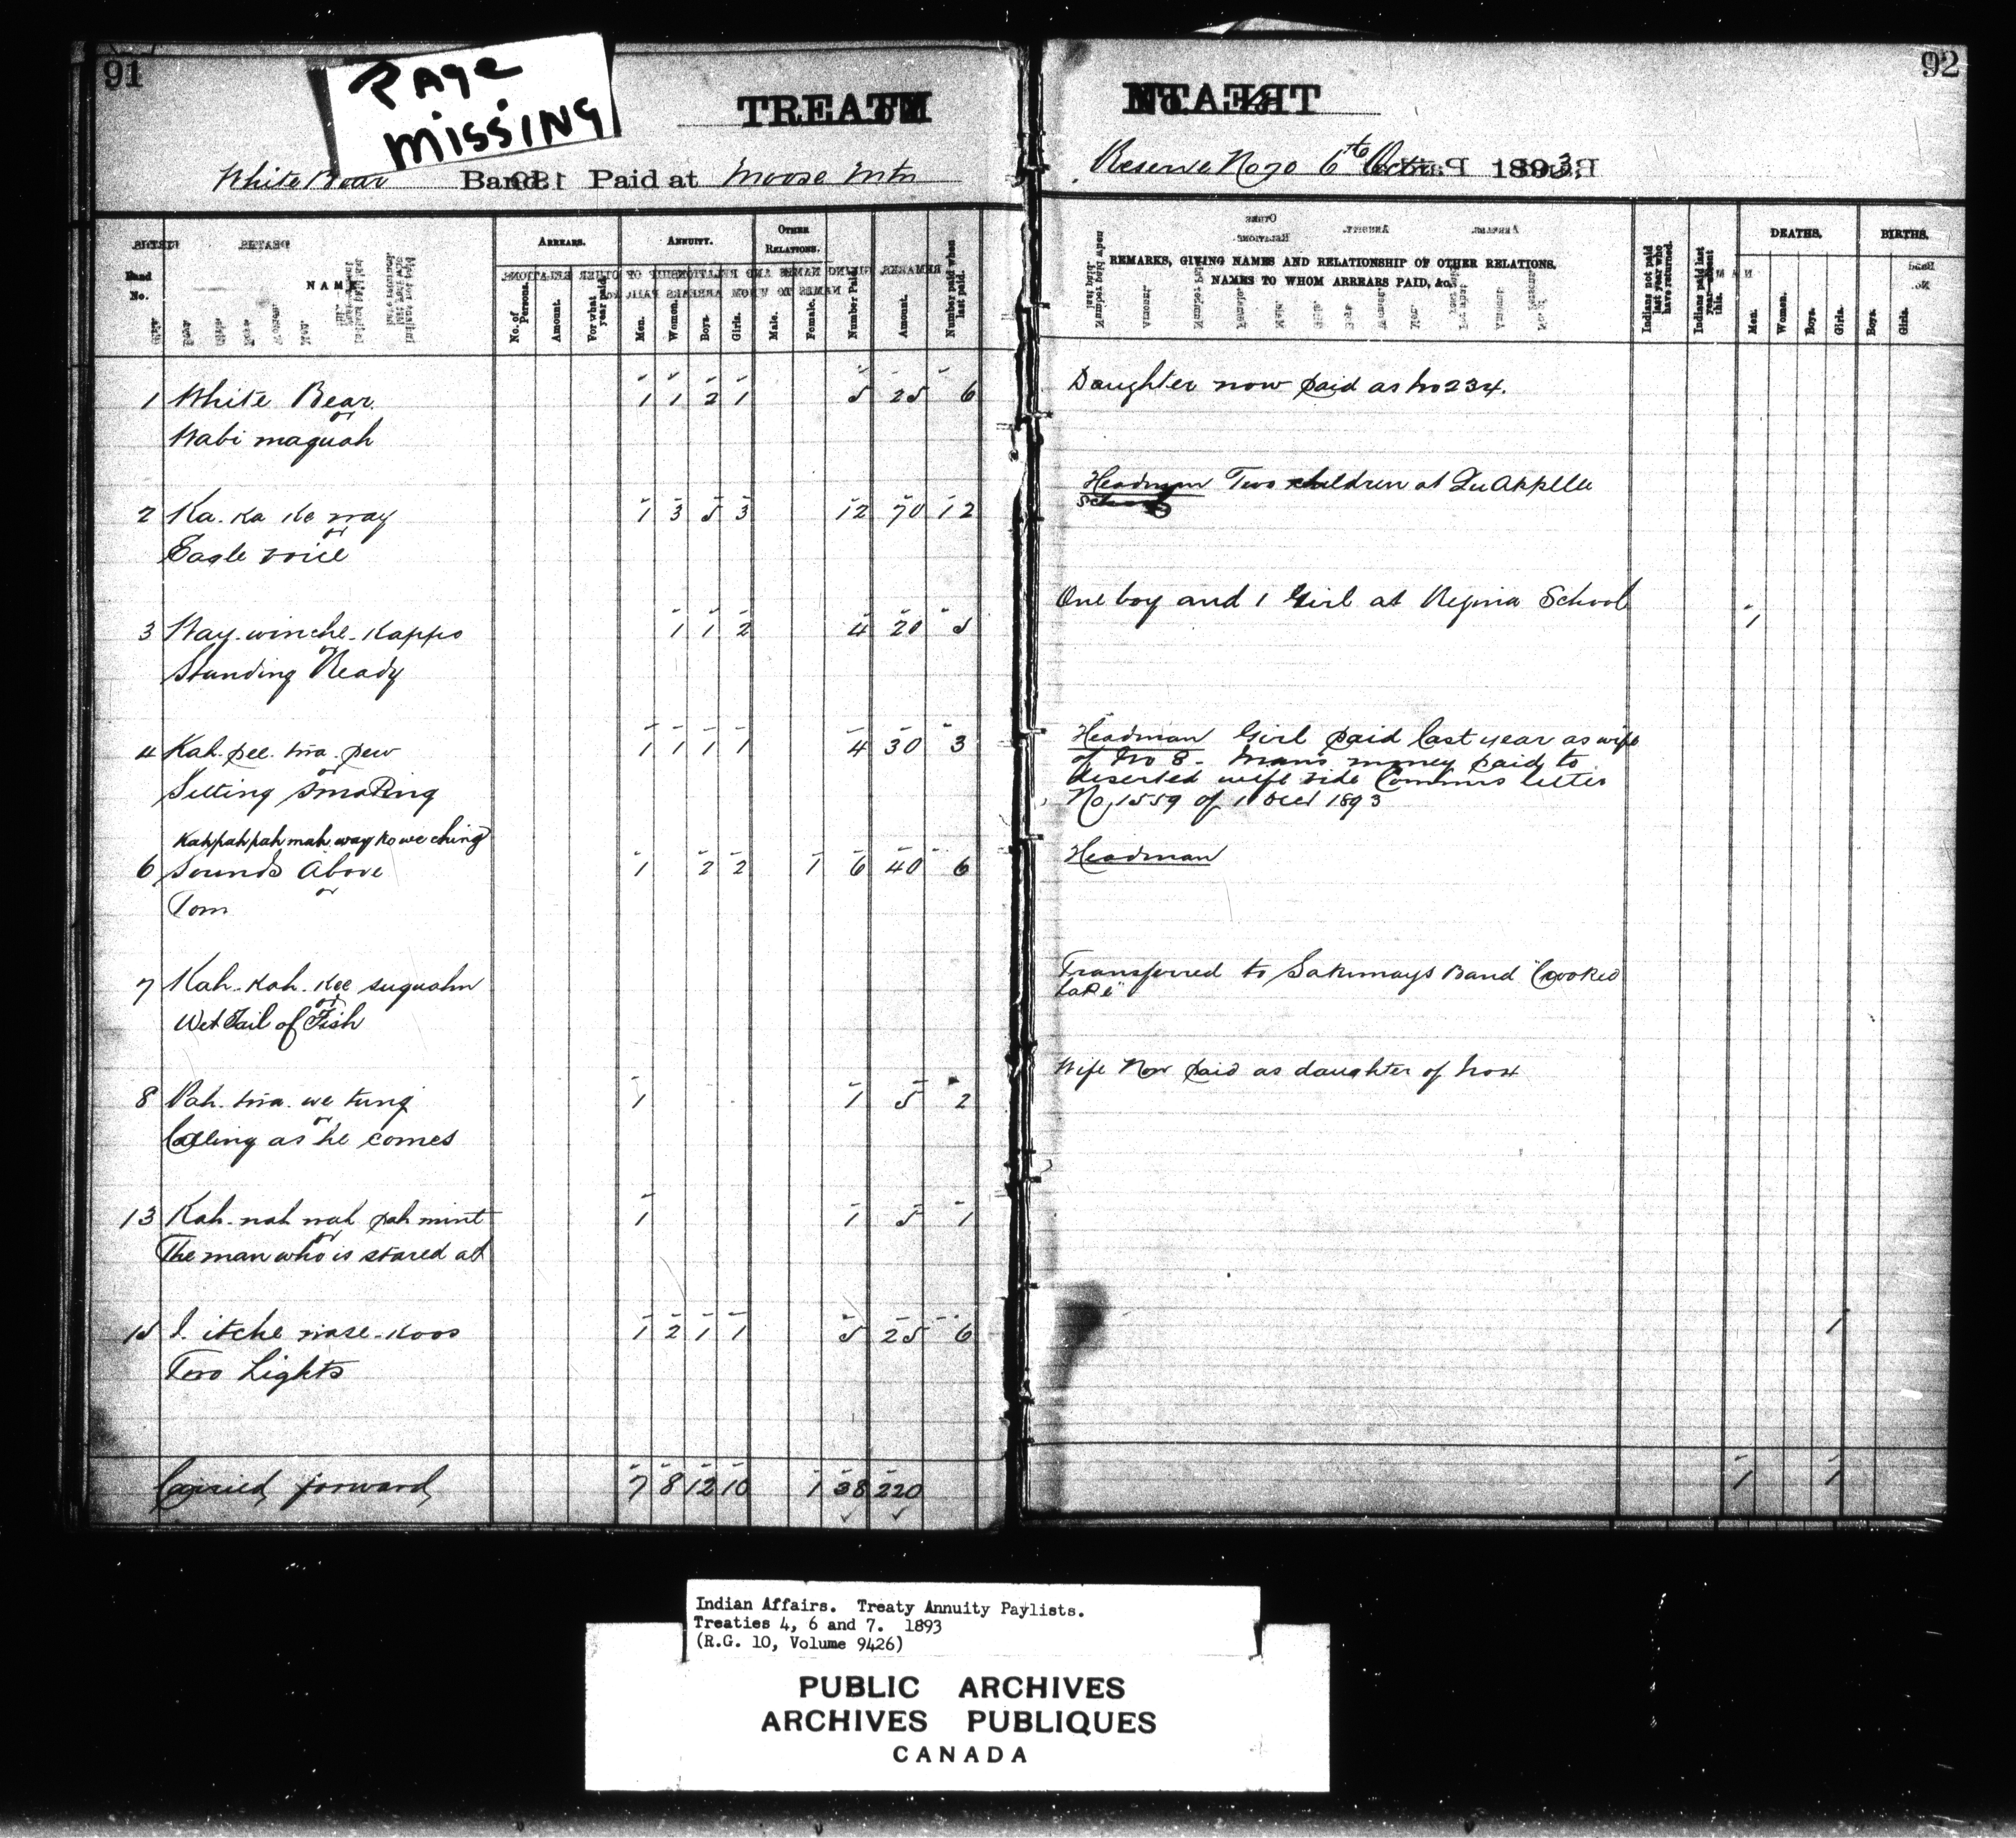 91
PAGE
MISSING
TREATY
White Bear Band. Paid at Moose Mtn
Band
No.
NAME
ARREARS.
No. of
Persons.
Amount.
For what
year paid.
ANNUITY.
Men.
Women.
Boys.
Girls.
OTHER
RELATIONS.
Male.
Female.
Number Paid.
Amount.
Number paid when
last paid.
1 White Bear 1 1 2 1 5 25 6
or
Wabi maquah
2 Ka. Ka Ke way 1 3 5 3 12 70 12
or
Eagle voice
3 Way. winche. Kappo 1 1 2 4 20 5
or
Standing Ready
4 Kah. pee. twa. pew 1 1 1 1 4 30 3
or
Sitting Smoking
Kahpahpahmah.way ko we ching
6 Sounds Above 1 2 2 1 6 40 6
or
Tom
7 Kah. Kah. Kee suquahn
or
Wet Tail of Fish
8 Pah. twa. we tung 1 1 5 2
or
Calling as he comes
13 Kah. nah wah pah mint 1 1 5 1
or
The man who is stared at
15 I. itche wase. Koos 1 2 1 1 5 25 6
Two Lights
Carried forward 7 8 12 10 1 38 220
92
Reserve No 70 6th Octr. 1893.
REMARKS, GIVING NAMES AND RELATIONSHIP OF OTHER RELATIONS,
NAMES TO WHOM ARREARS PAID, &c.
Indians not paid
last year who
have returned.
Indians paid last
year absent
this.
DEATHS.
Men.
Women.
Boys.
Girls.
BIRTHS.
Boys.
Girls.
Daughter now paid as No 234.
Headman Two children at Qu Appelle
School
One boy and 1 Girl at Regina School 1
Headman Girl paid last year as wife
of No 8. Man's money paid to
deserted wife vide Commrs letter
No. 1559 of 1 Decr 1893
Headman
Transferred to Sakimays Band "Crooked
Lake"
Wife Now paid as daughter of No 4
1
1 1
Indian Affairs. Treaty Annuity Paylists.
Treaties 4, 6 and 7. 1893
(R.G. 10, Volume 9426)
PUBLIC ARCHIVES
ARCHIVES PUBLIQUES
CANADA